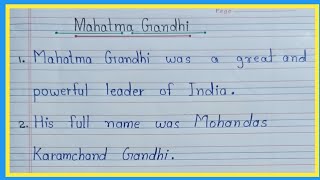 Page
Mahatma Gandhi
1. Mahatma Gandhi was a great and
powerful leader of India.
2. His full name was Mohandas
Karamchand Gandhi.